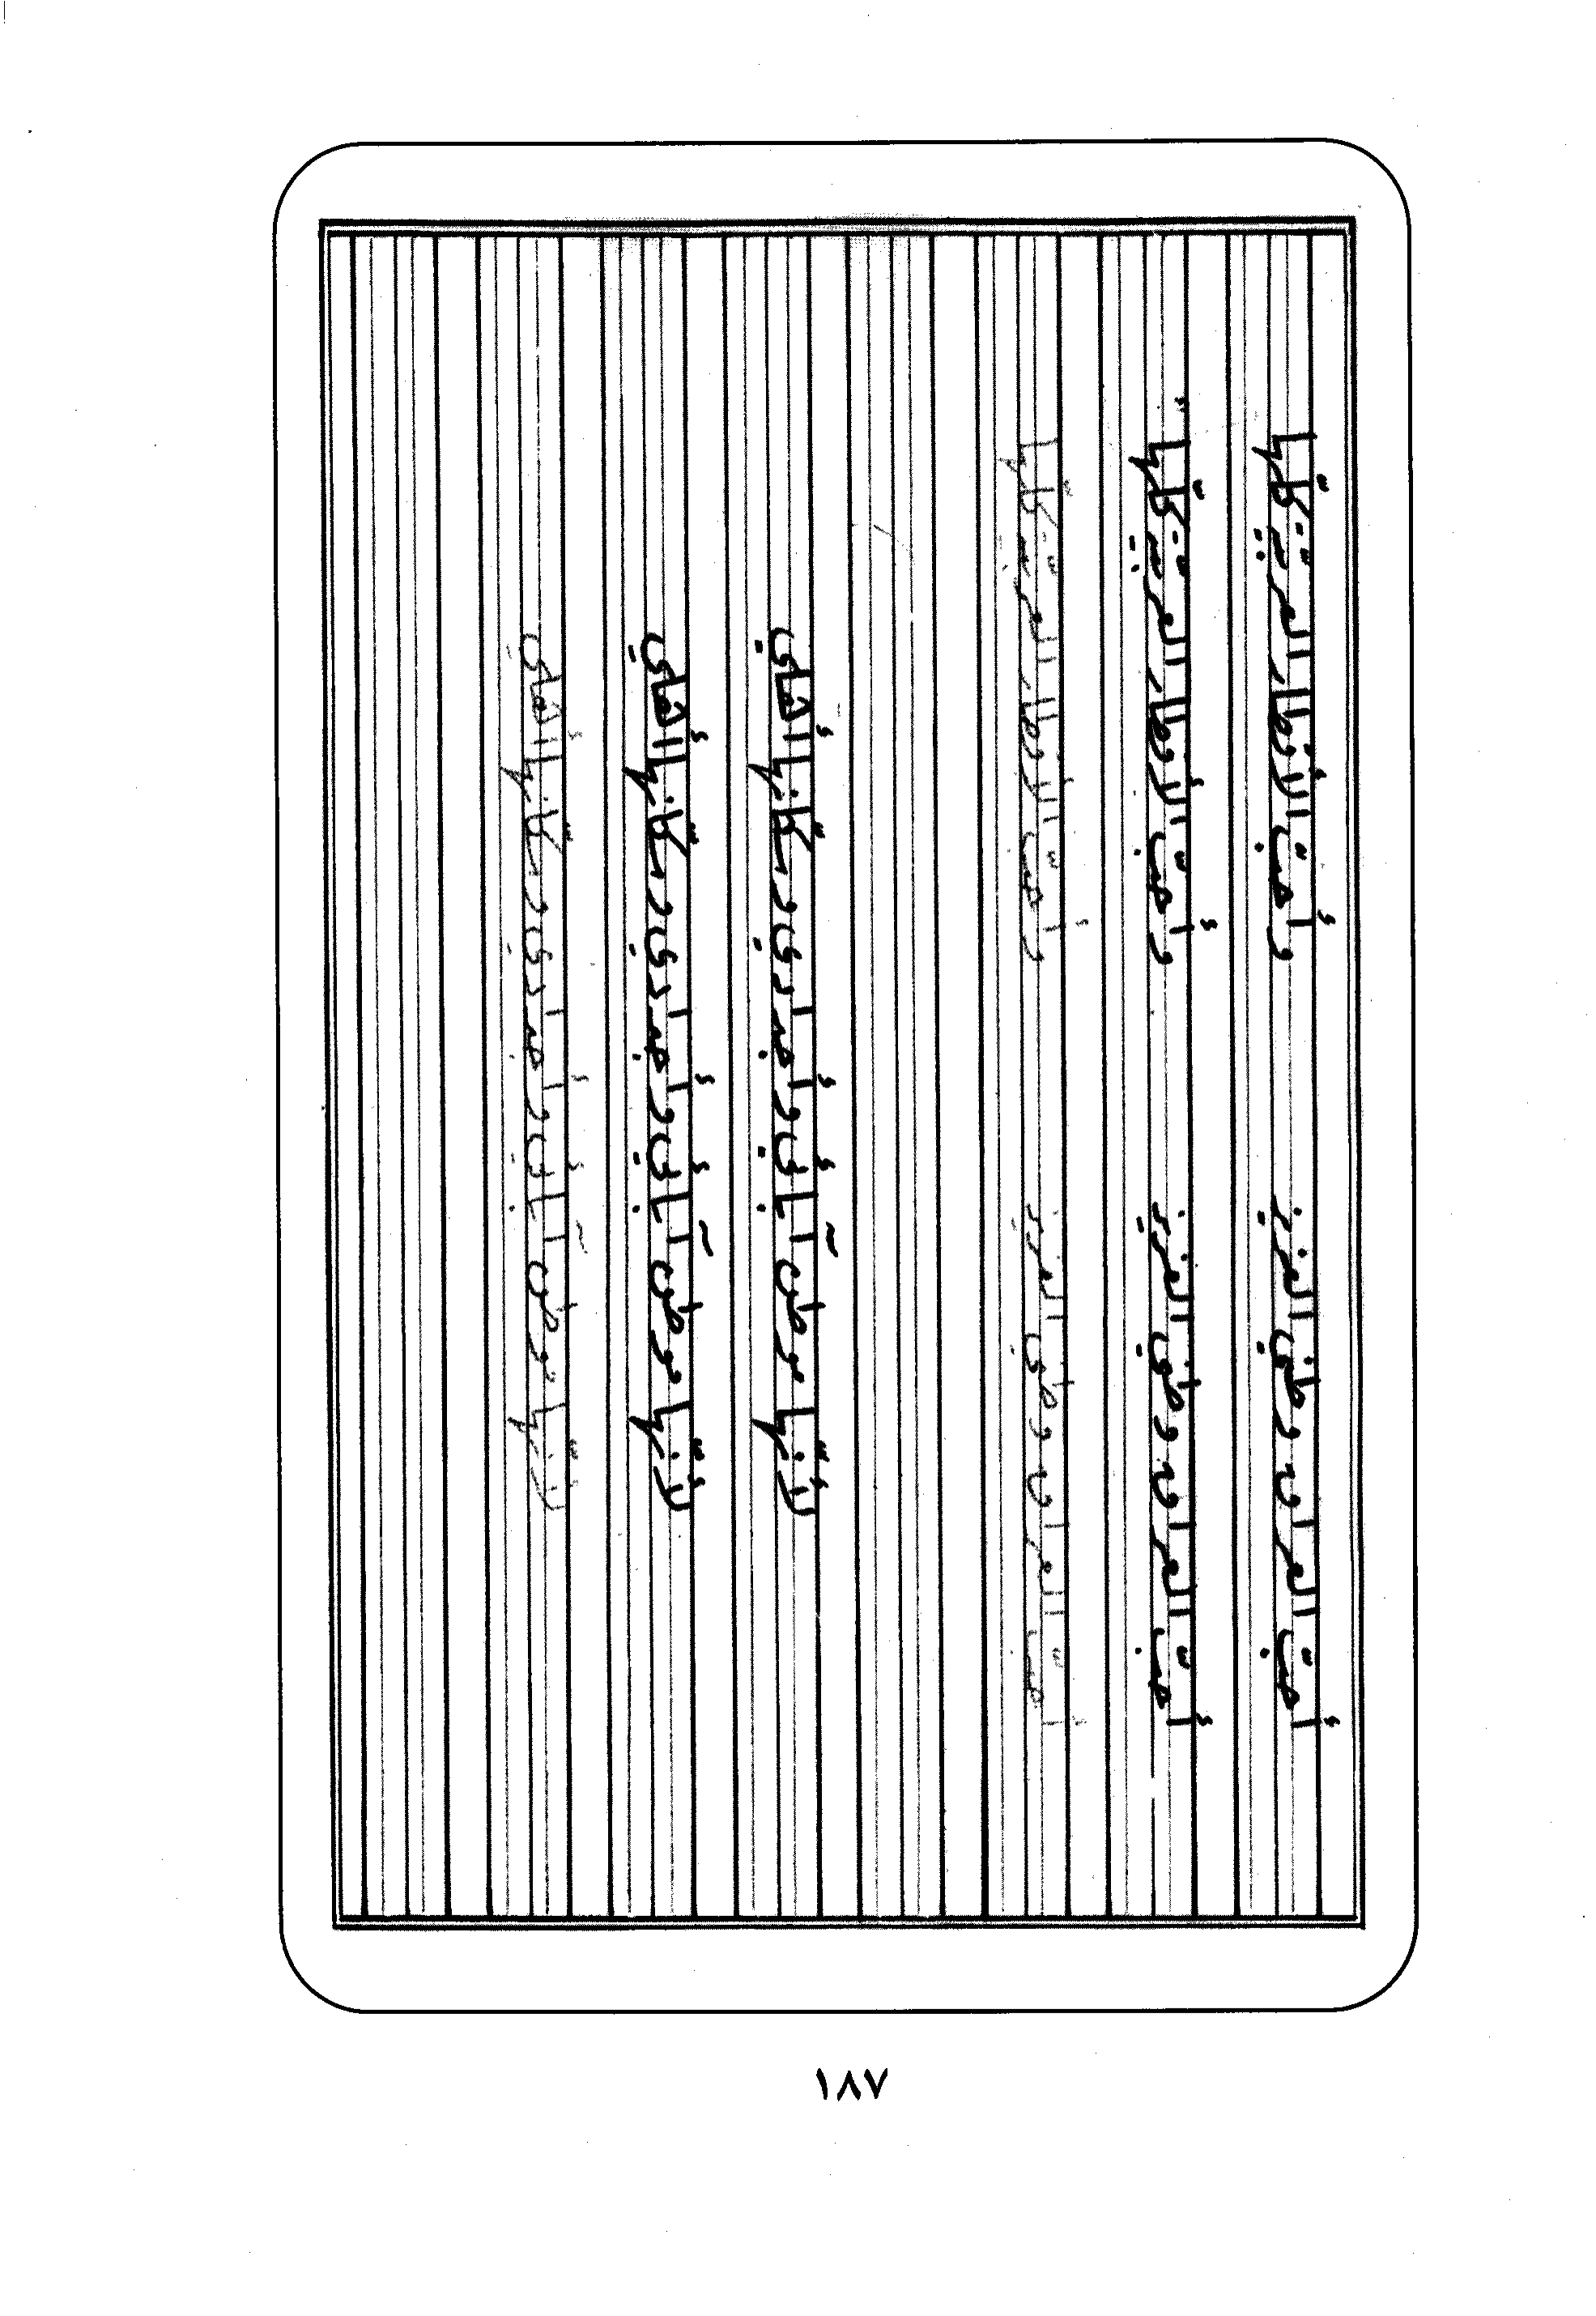 أحبّ العراق وطني العزيز وأحبّ الأقطار العربيّة كلّها
أحبّ العراق وطني العزيز وأحبّ الأقطار العربيّة كلّها
أحبّ العراق وطني العزيز وأحبّ الأقطار العربيّة كلّها
لأنّها موطن آبائي وأجدادي وسكّانها أهلي
لأنّها موطن آبائي وأجدادي وسكّانها أهلي
لأنّها موطن آبائي وأجدادي وسكّانها أهلي
١٨٧